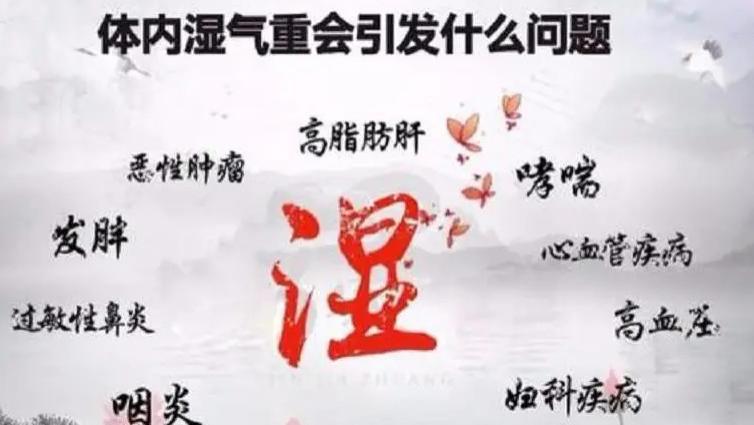 体内湿气重会引发什么问题
高脂肪肝
恶性肿瘤
哮喘
发胖
心血管疾病
湿
过敏性鼻炎
高血压
妇科疾病
咽炎